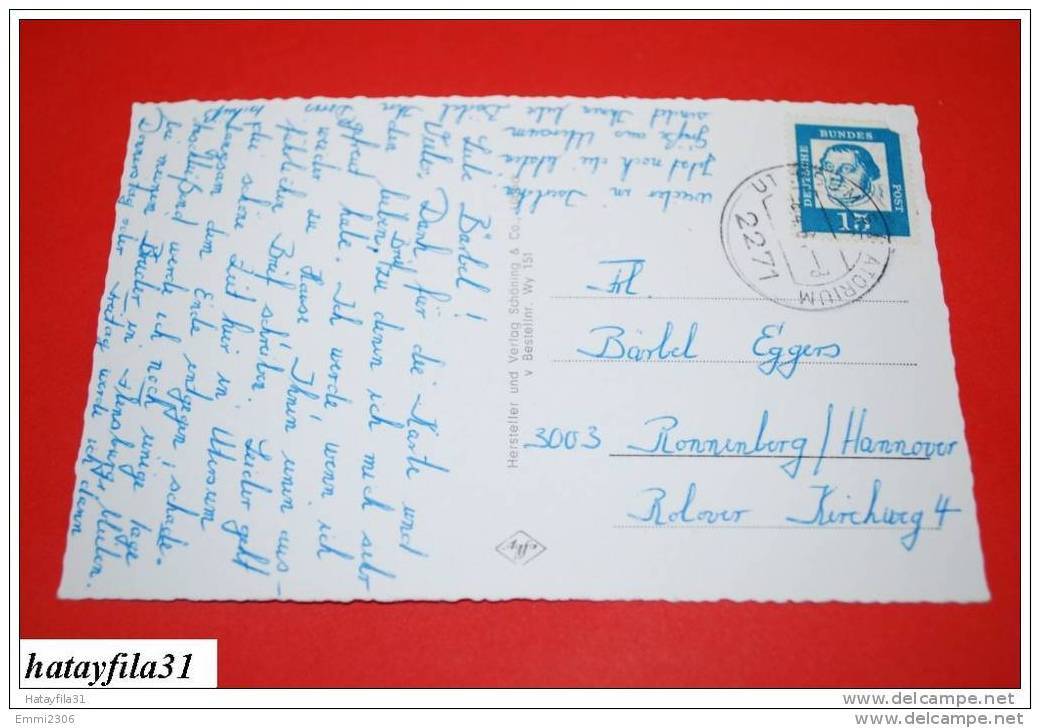 Liebe Bärbel!
Vielen Dank für die Karte und
den lieben Brief, zu denen ich mich sehr
gefreut habe. Ich werde wenn ich
wieder zu Hause Ihnen einen aus-
führlichen Brief schreiben. Leider geht
die schöne Zeit hier in
langsam dem Ende entgegen; schade.
werde ich noch einige Tage
bei meinem Bruder in Flensburg bleiben.
Donnerstag oder Freitag werde ich dann
wieder in
jetzt noch die letzten
Grüße aus
sendet Ihnen liebe Bärbel Ihr
Hersteller und Verlag Schöning & Co.
v Bestellnr. Wy 151
DEUTSCHE
BUNDES
POST
15
2271
Frl.
Bärbel Eggers
3003 Ronnenberg/Hannover
Rolover Kirchweg 4
hatayfila31
Hatayfila31
Emmi2306
www.delcampe.net